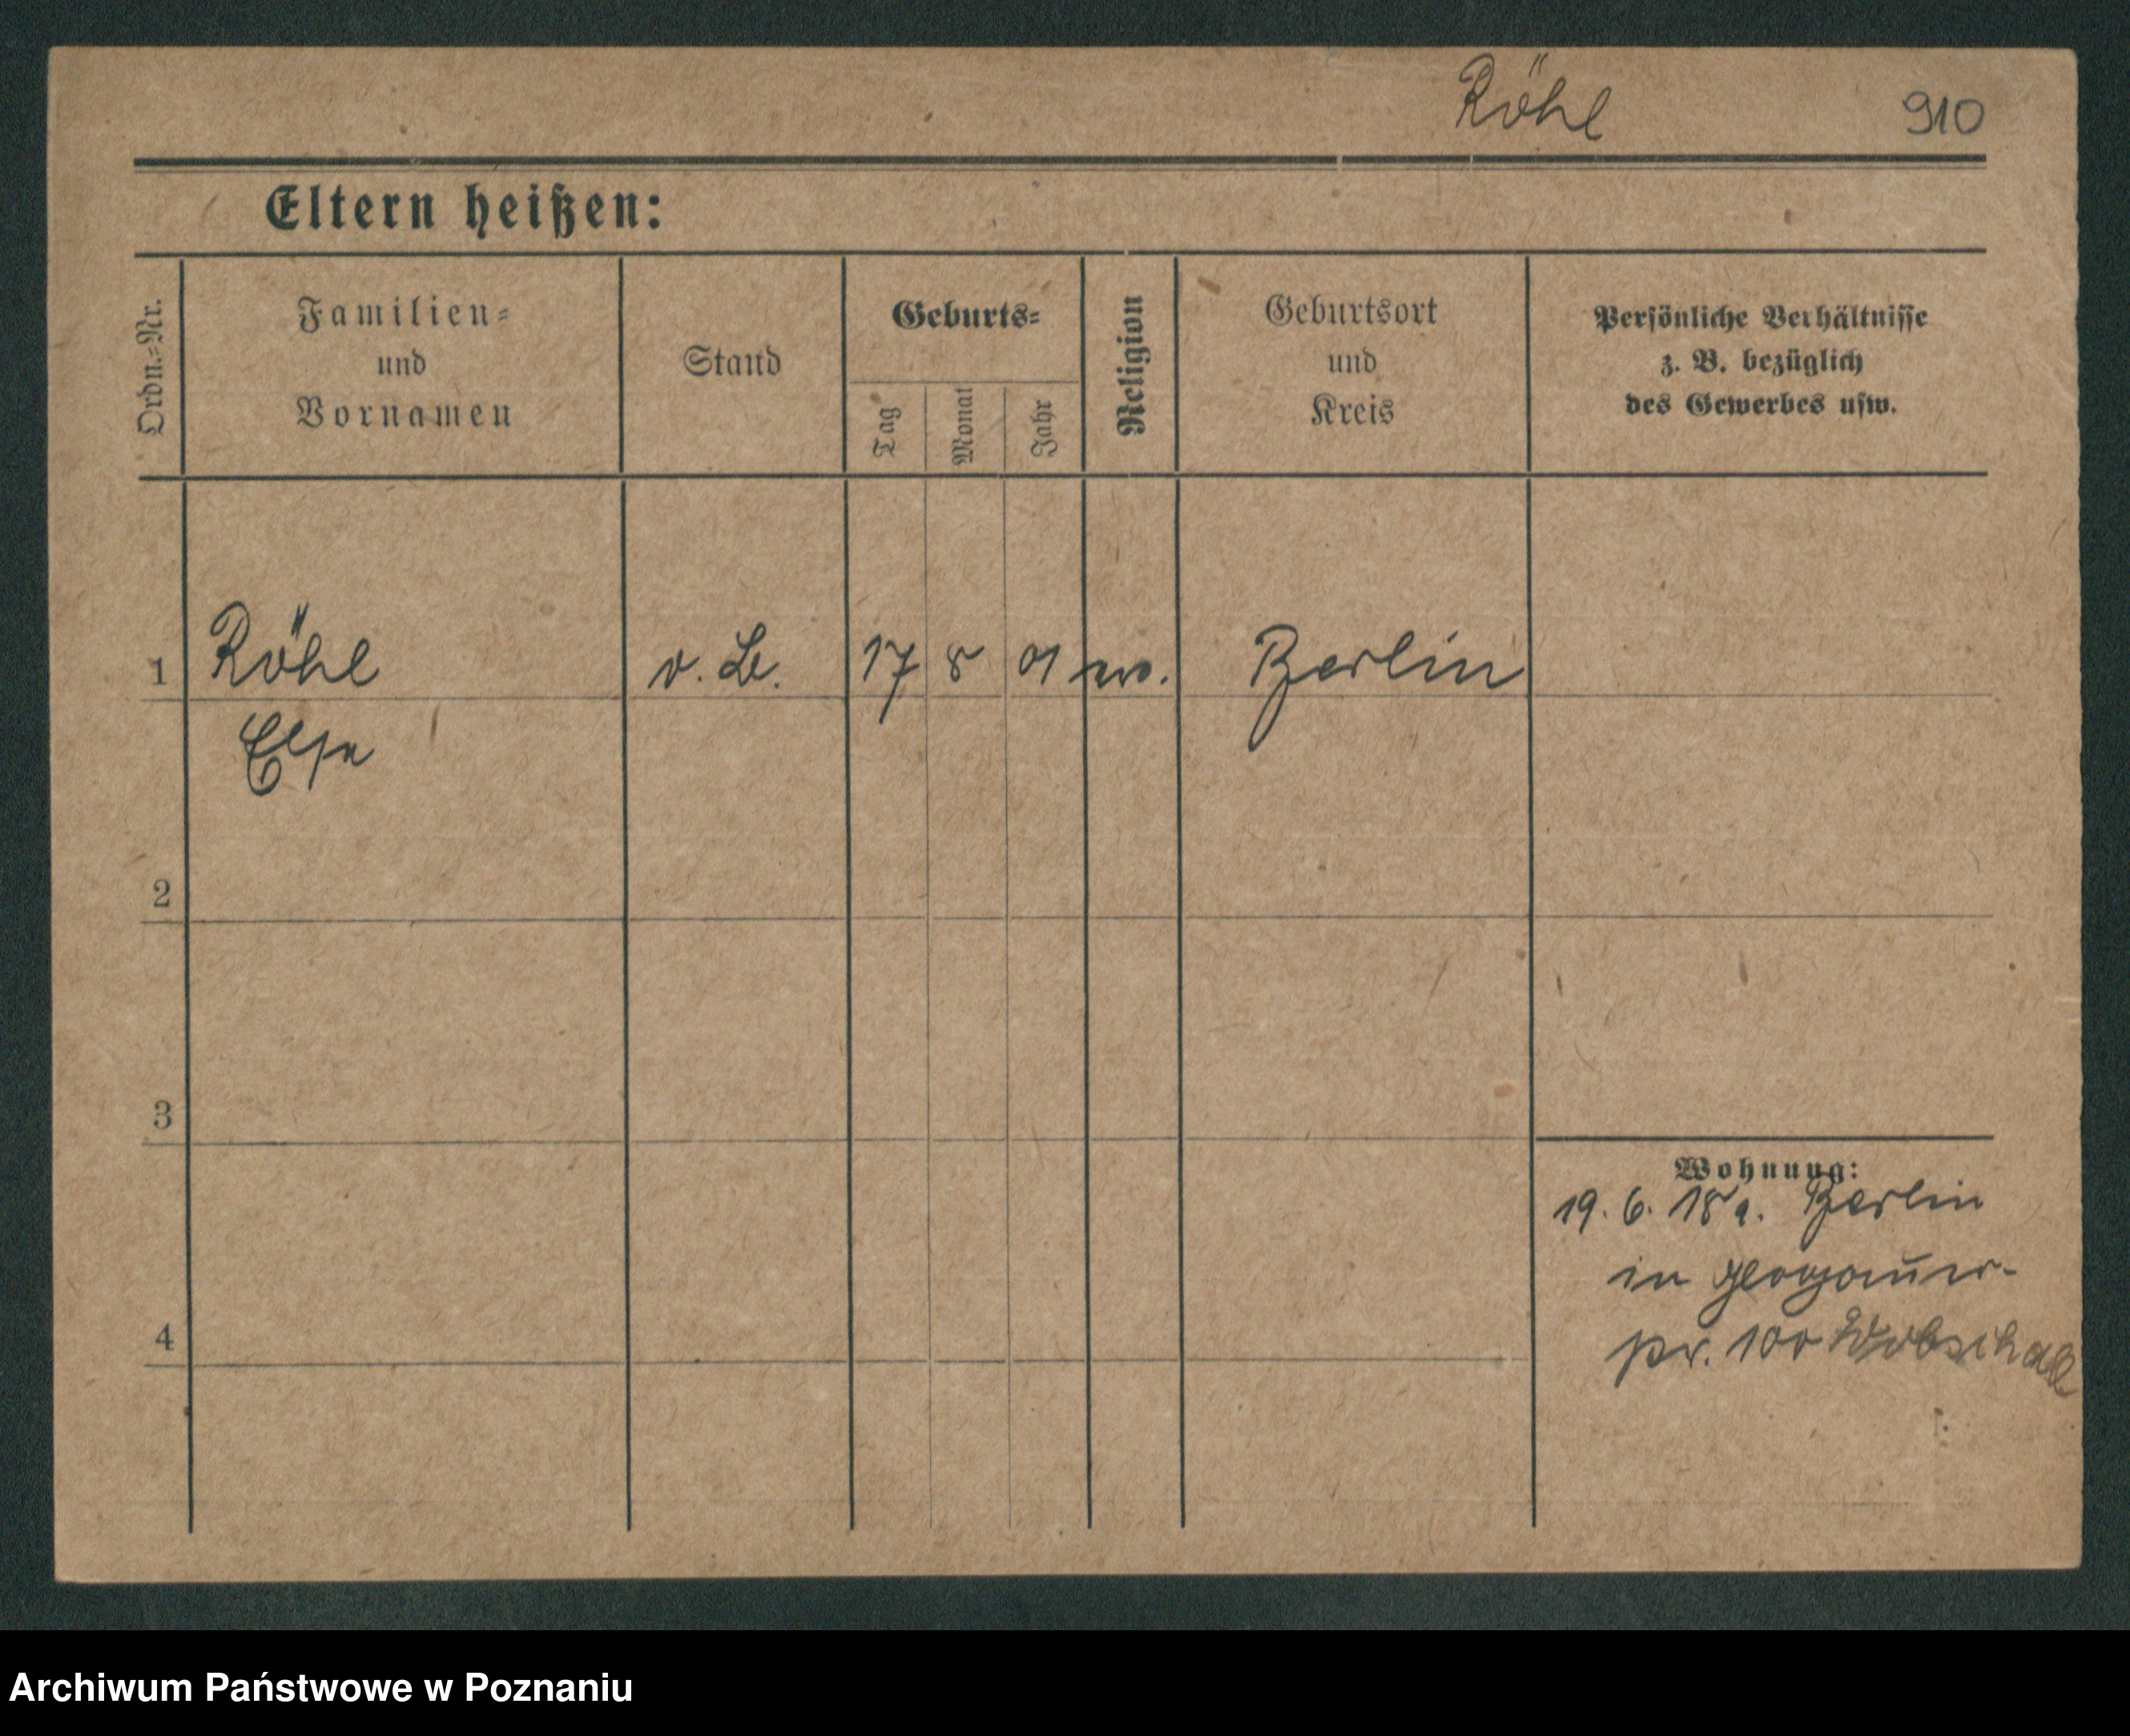 Röhl 910
Eltern heißen:
Ordn.=Nr.
Familien=
und
Vornamen
Stand
Geburts=
Tag
Monat
Jahr
Religion
Geburtsort
und
Kreis
Persönliche Verhältnisse
z. B. bezüglich
des Gewerbes usw.
1 Röhl 17 8 01 Berlin
Else
2
3
4
Wohnung:
19. 6. 18 Berlin
in
100
Archiwum Państwowe w Poznaniu